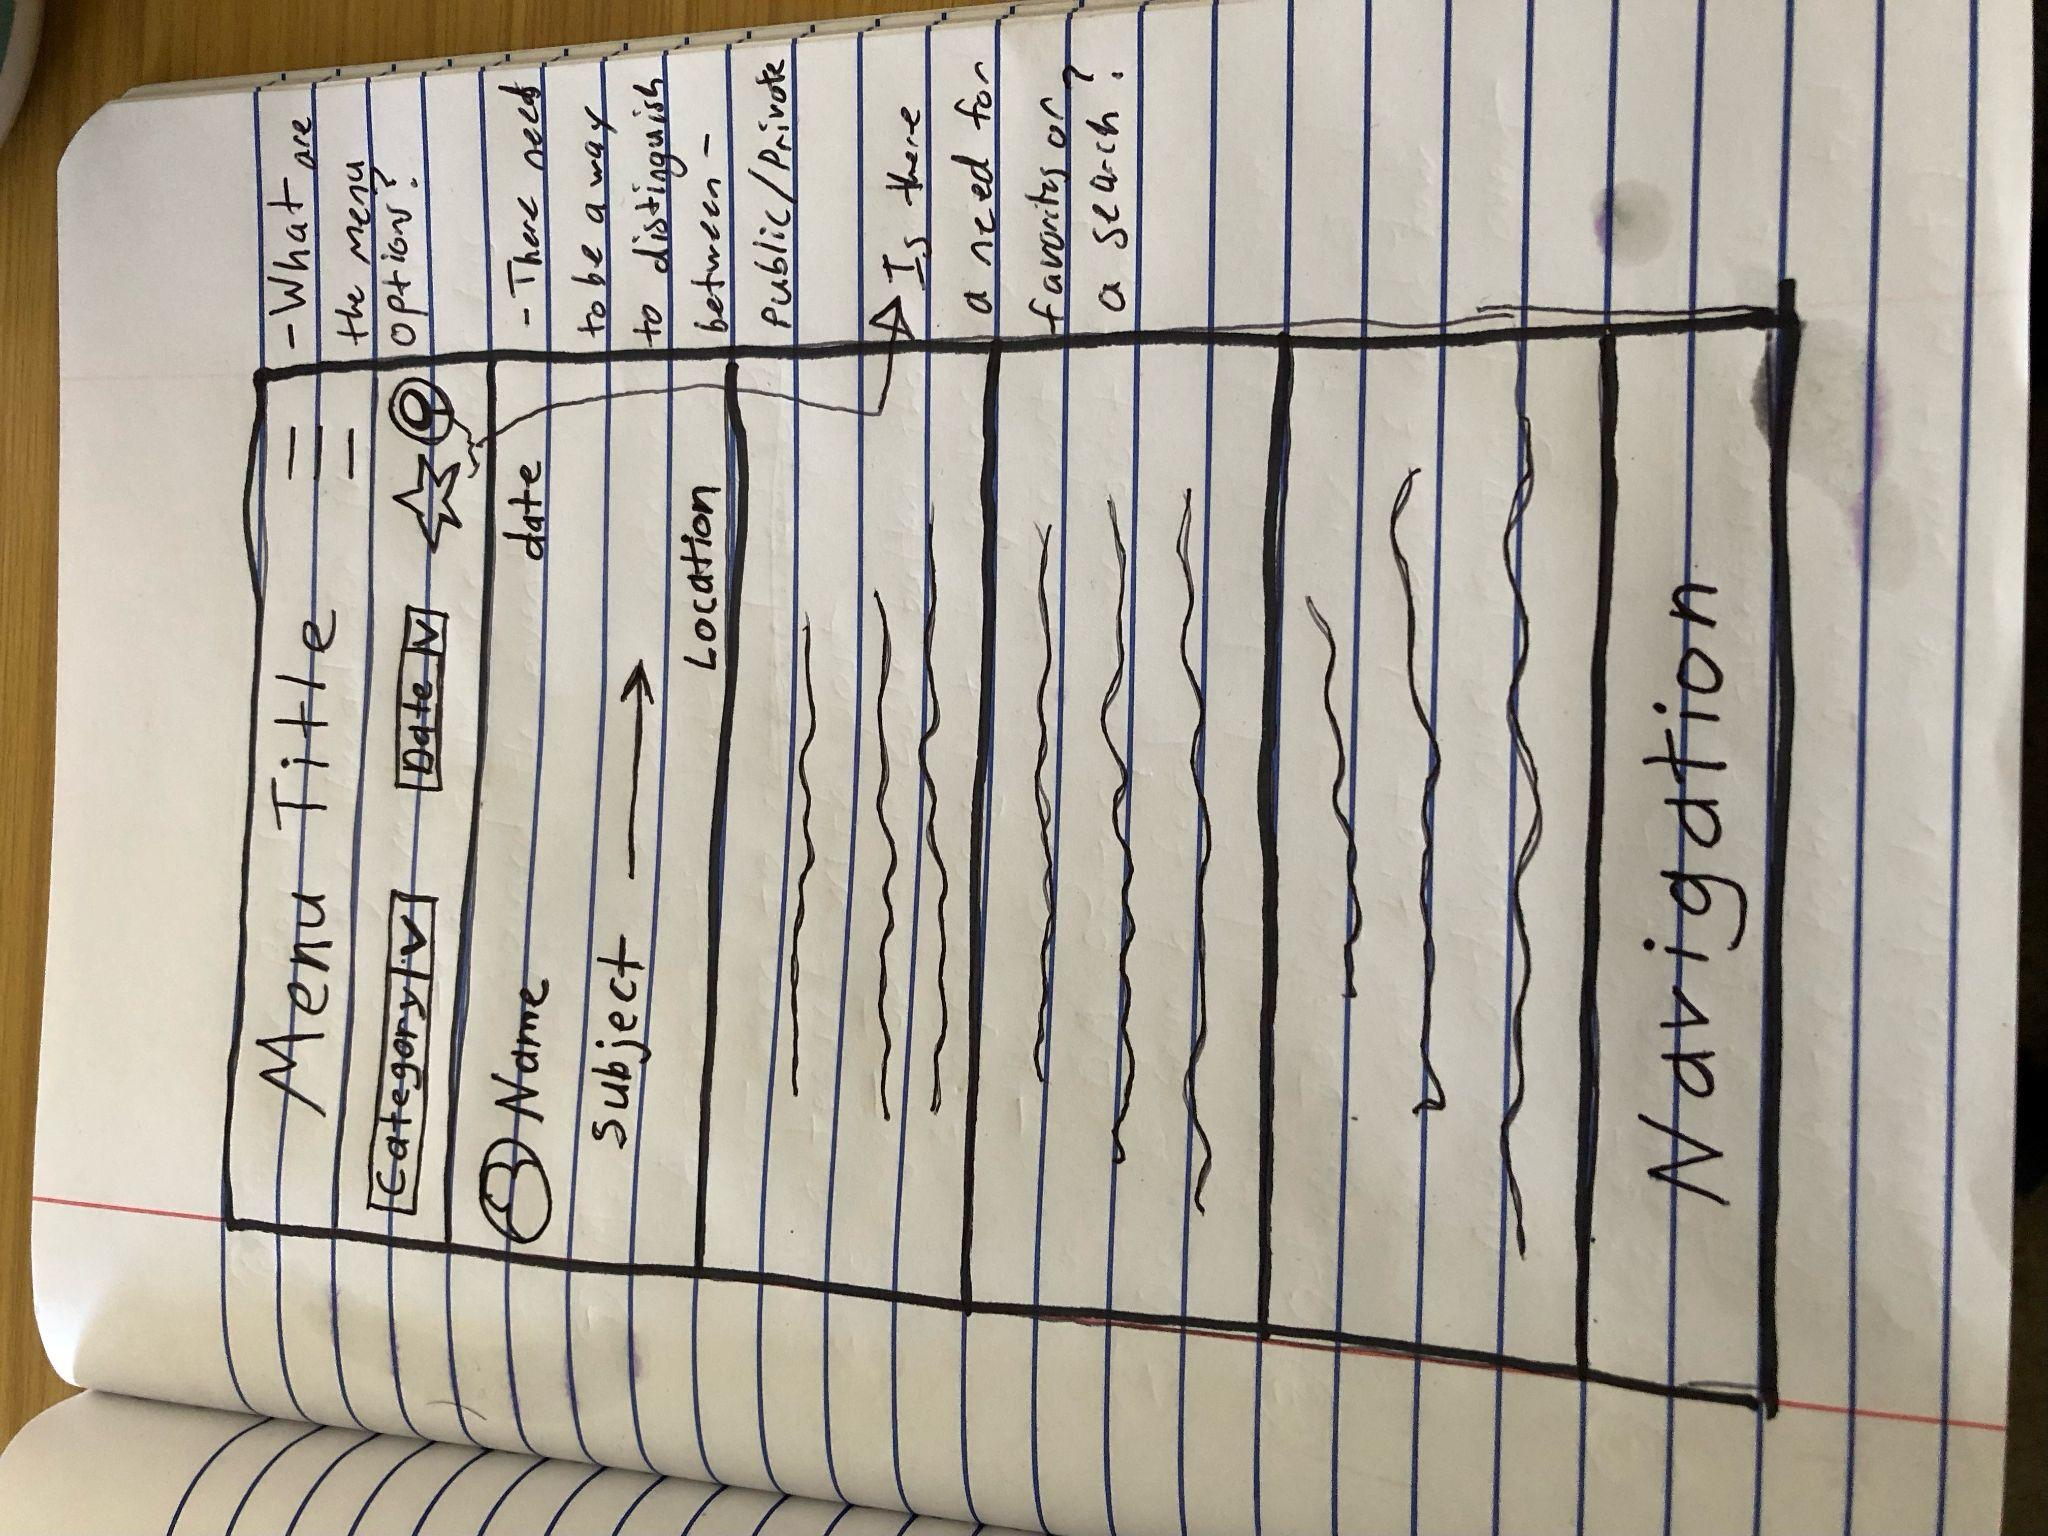 Menu Title
Category V
Date V
Name
date
Subject
Location
Navigation
- What are
the menu
options?
- There needs
to be a way
to distinguish
between -
Public/Private
Is there
a need for
favorites or
a search?